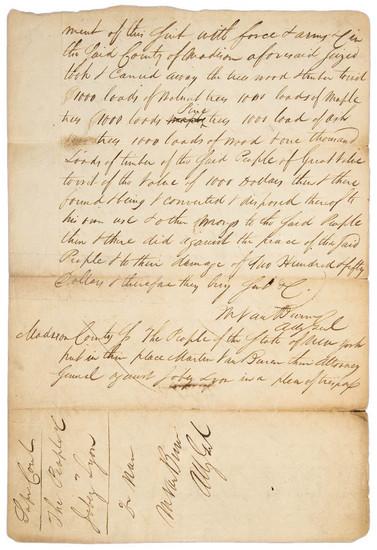 ment of this Suit with force & arms &c in
the said County of Madison aforesaid seized
took & Carried away the trees wood & timber to wit
1000 loads of Walnut trees 1000 loads of Maple
trees 1000 loads maple Pine trees 1000 load of ash
trees 1000 loads of wood & one thousand
Loads of timber of the said People of Great Value
to wit of the Value of 1000 Dollars then & there
found & being & converted & disposed thereof to
his own use & other wrongs to the said People
then & there did against the peace of the said
People & to their damage of two Hundred & fifty
Dollars & therefore they bring Suit &c.
M Van Buren
Atty Genl
Madison County Ss The People of the State of New York
put in their place Martin Van Buren their Attorney
General against Jobey Lyon in a plea of trespass
Supr Court
The People &c
vs
Jobey Lyon
M Van Buren
Atty Genl